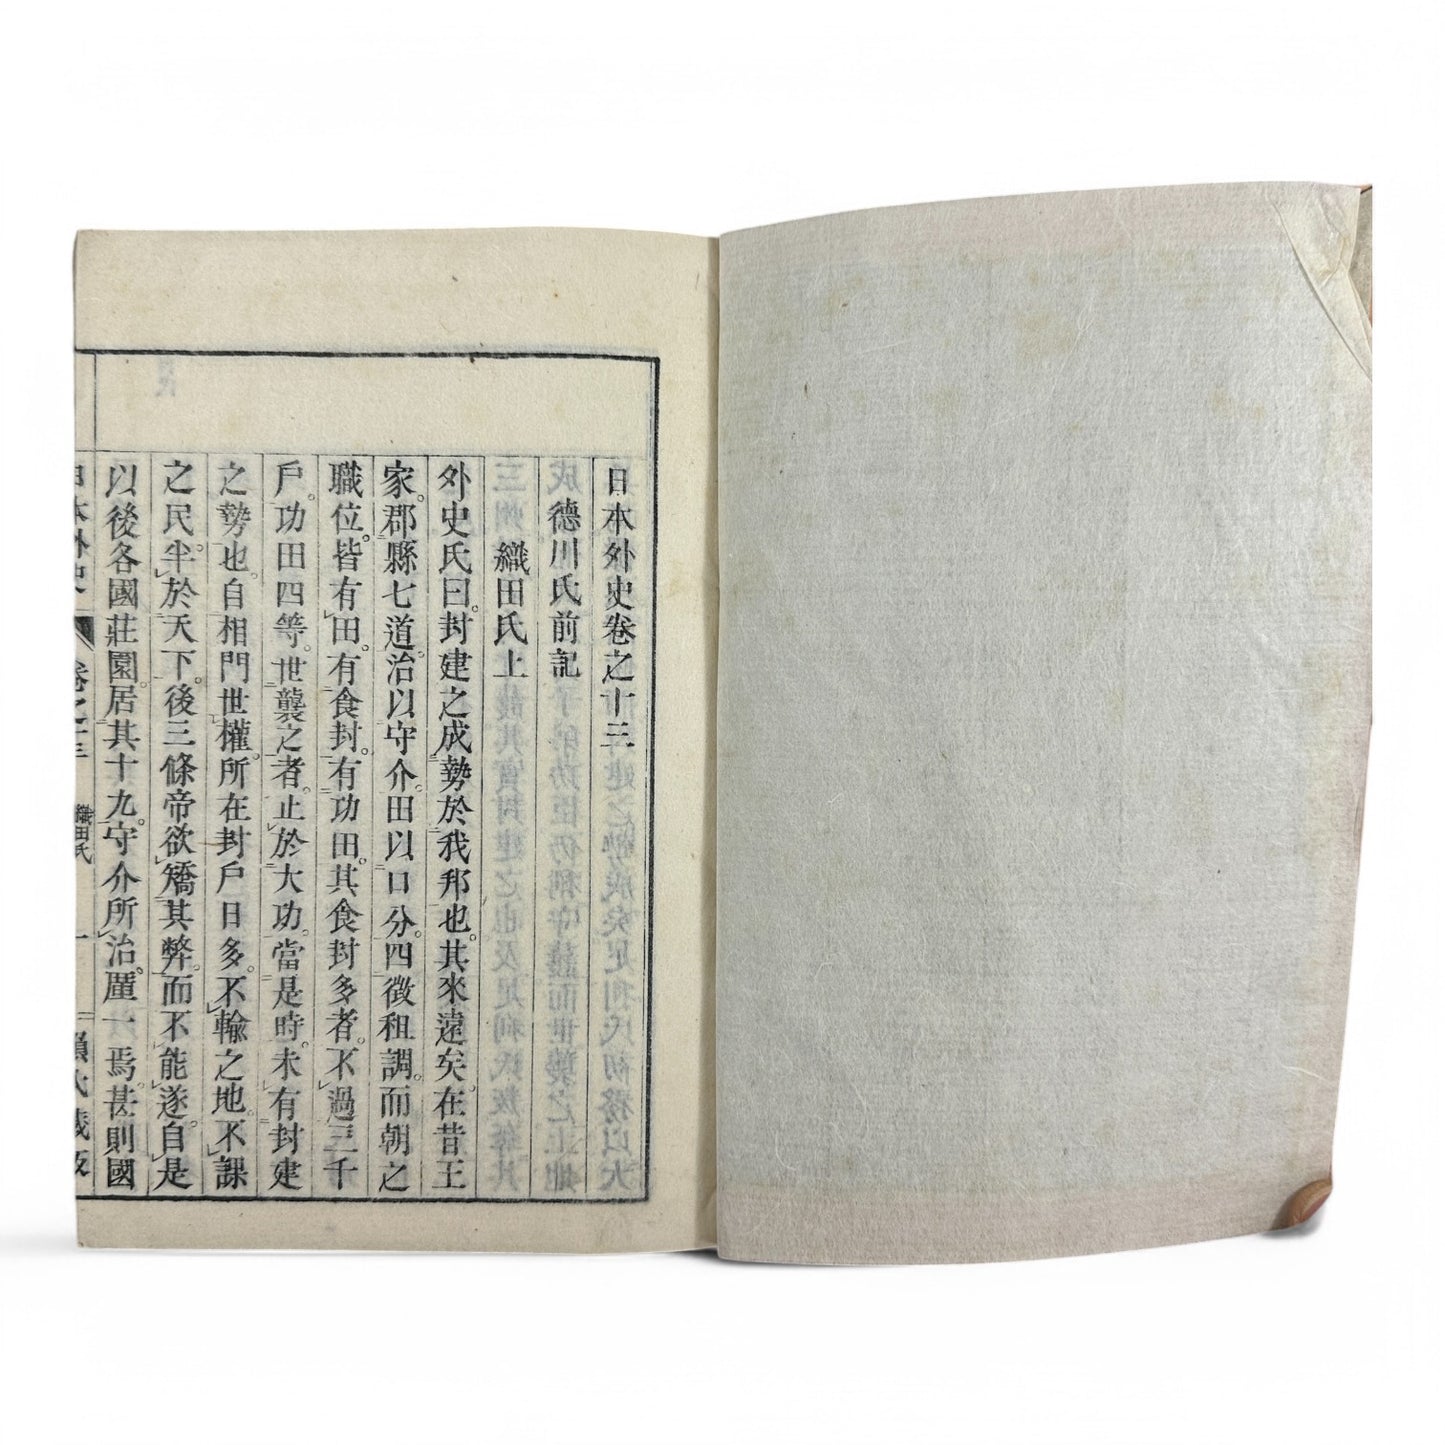 日本外史卷之十三
德川氏前記
織田氏上
外史氏曰。封建之成勢於我邦也。其來遠矣。在昔王
家。郡縣七道。治以守介。田以口分。四徵租調。而朝之
職位。皆有田。有食封。有功田。其食封多者。不過三千
戶。功田四等。世襲之者。止於大功。當是時。未有封建
之勢也。自相門世權。所在封戶日多。不輸之地。不課
之民。半於天下。後三條帝欲矯其弊。而不能遂。自是
以後各國莊園。居其十九。守介所治。厪一焉。甚則國
日本外史 卷之十三 織田氏 一 賴氏藏版